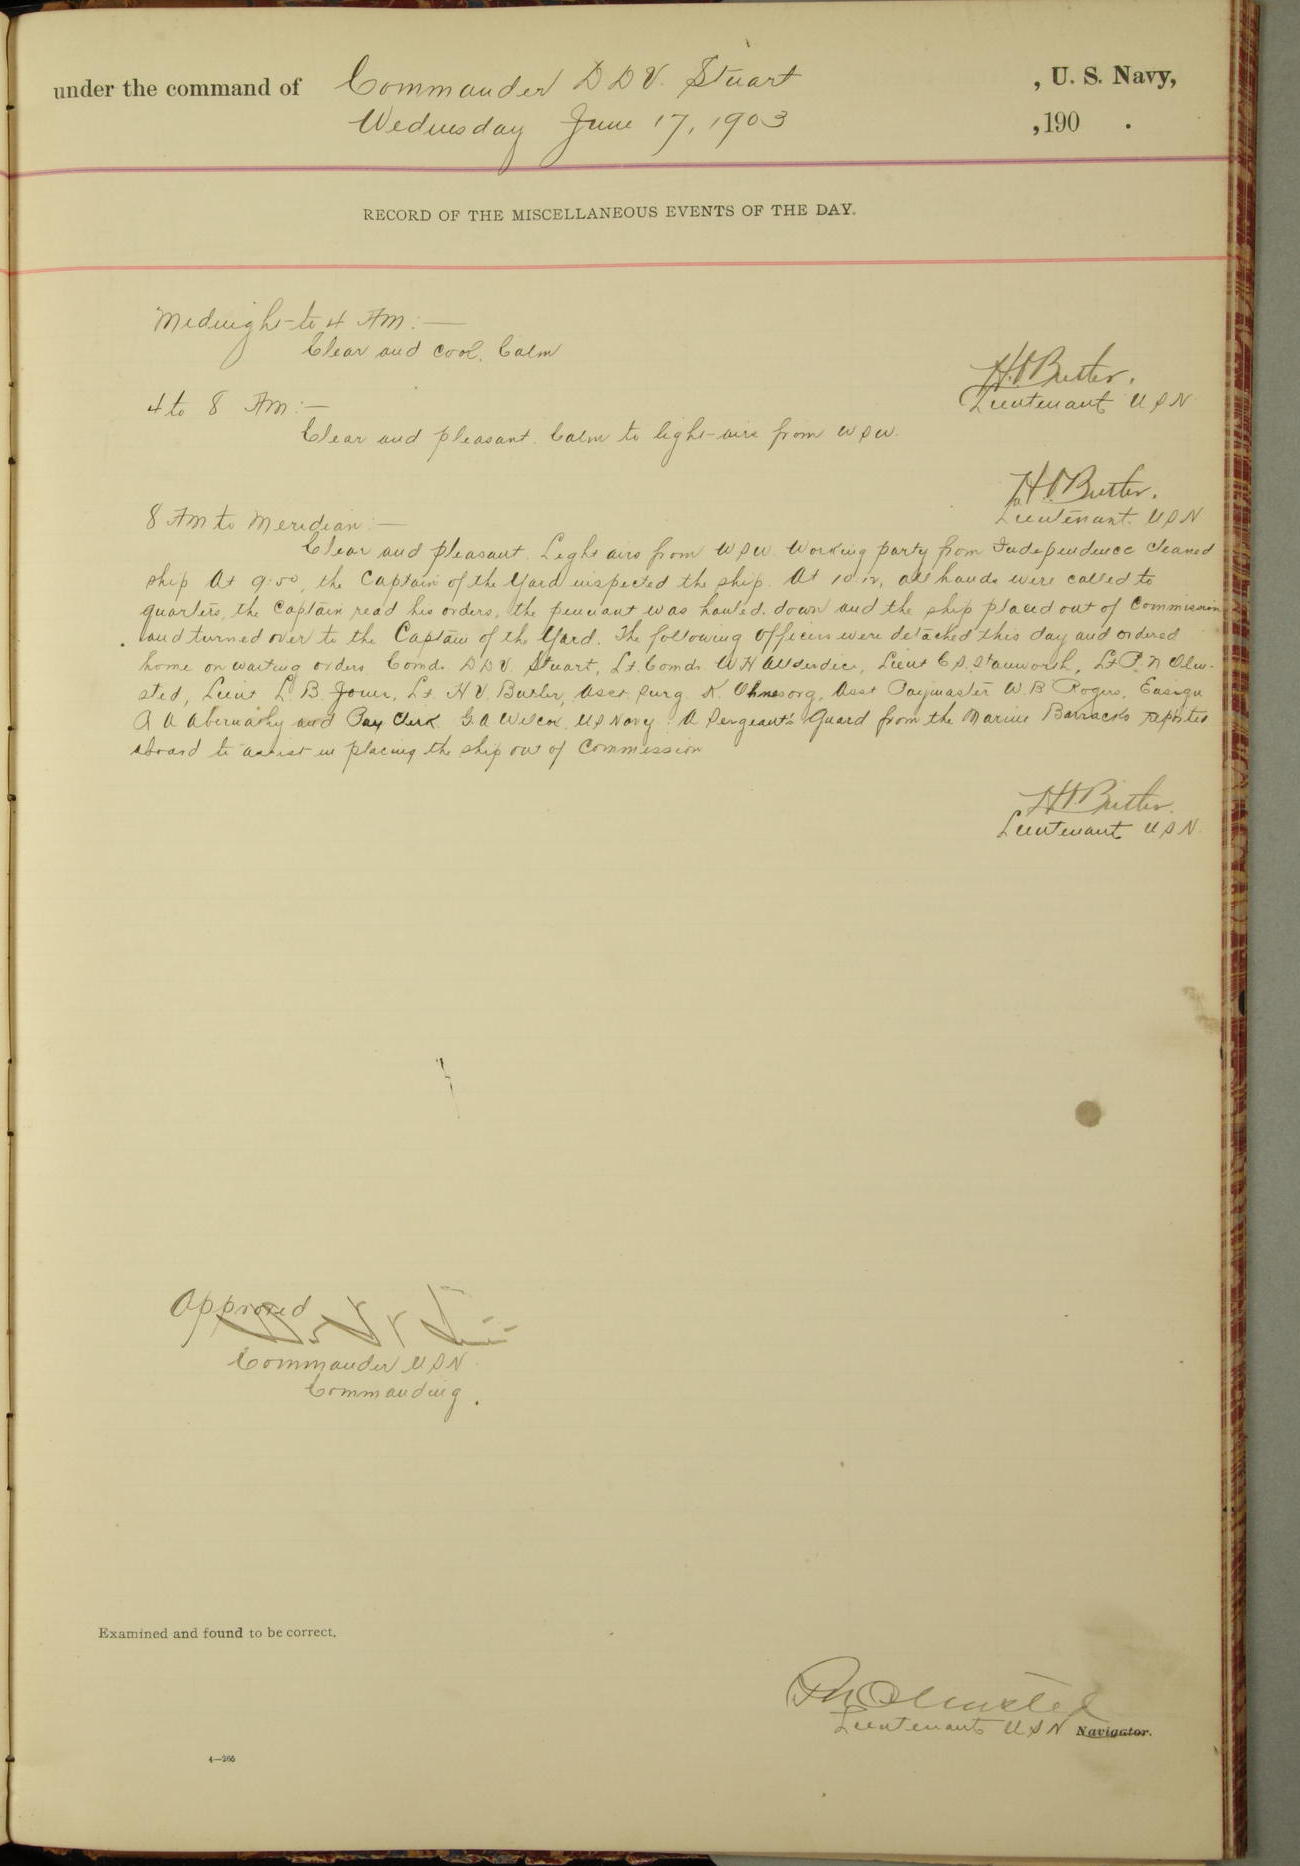 under the command of Commander D D V. Stuart , U. S. Navy,
Wednesday June 17, 1903 , 190 .
RECORD OF THE MISCELLANEOUS EVENTS OF THE DAY.
Midnight to 4 AM:—
Clear and cool. Calm
H V Butler.
Lieutenant USN
4 to 8 AM:—
Clear and pleasant. Calm to light airs from WSW.
H V Butler.
Lieutenant. USN
8 AM to Meridian:—
Clear and pleasant. Light airs from WSW. Working party from Independence cleaned
ship At 9:50, the Captain of the Yard inspected the ship. At 10:12, all hands were called to
quarters, the Captain read his orders, the pennant was hauled down and the ship placed out of Commission
and turned over to the Captain of the Yard. The following Officers were detached this day and ordered
home on waiting orders Comdr. D D V. Stuart, Lt. Comdr. W H Allderdice, Lieut E. S. Stanworth, Lt P. N Olm-
sted, Lieut L B Jones, Lt. H V. Butler, Asst Surg. K. Ohnesorg, Asst Paymaster W. B Rogers, Ensign
A A Abernathy and Pay Clerk G A Wilcox US Navy. A Sergeant's Guard from the Marine Barracks reported
aboard to assist in placing the ship out of Commission
H V Butler.
Lieutenant USN.
Approved
Commander USN
Commanding.
Examined and found to be correct.
P N Olmsted
Lieutenant USN Navigator.
4—266